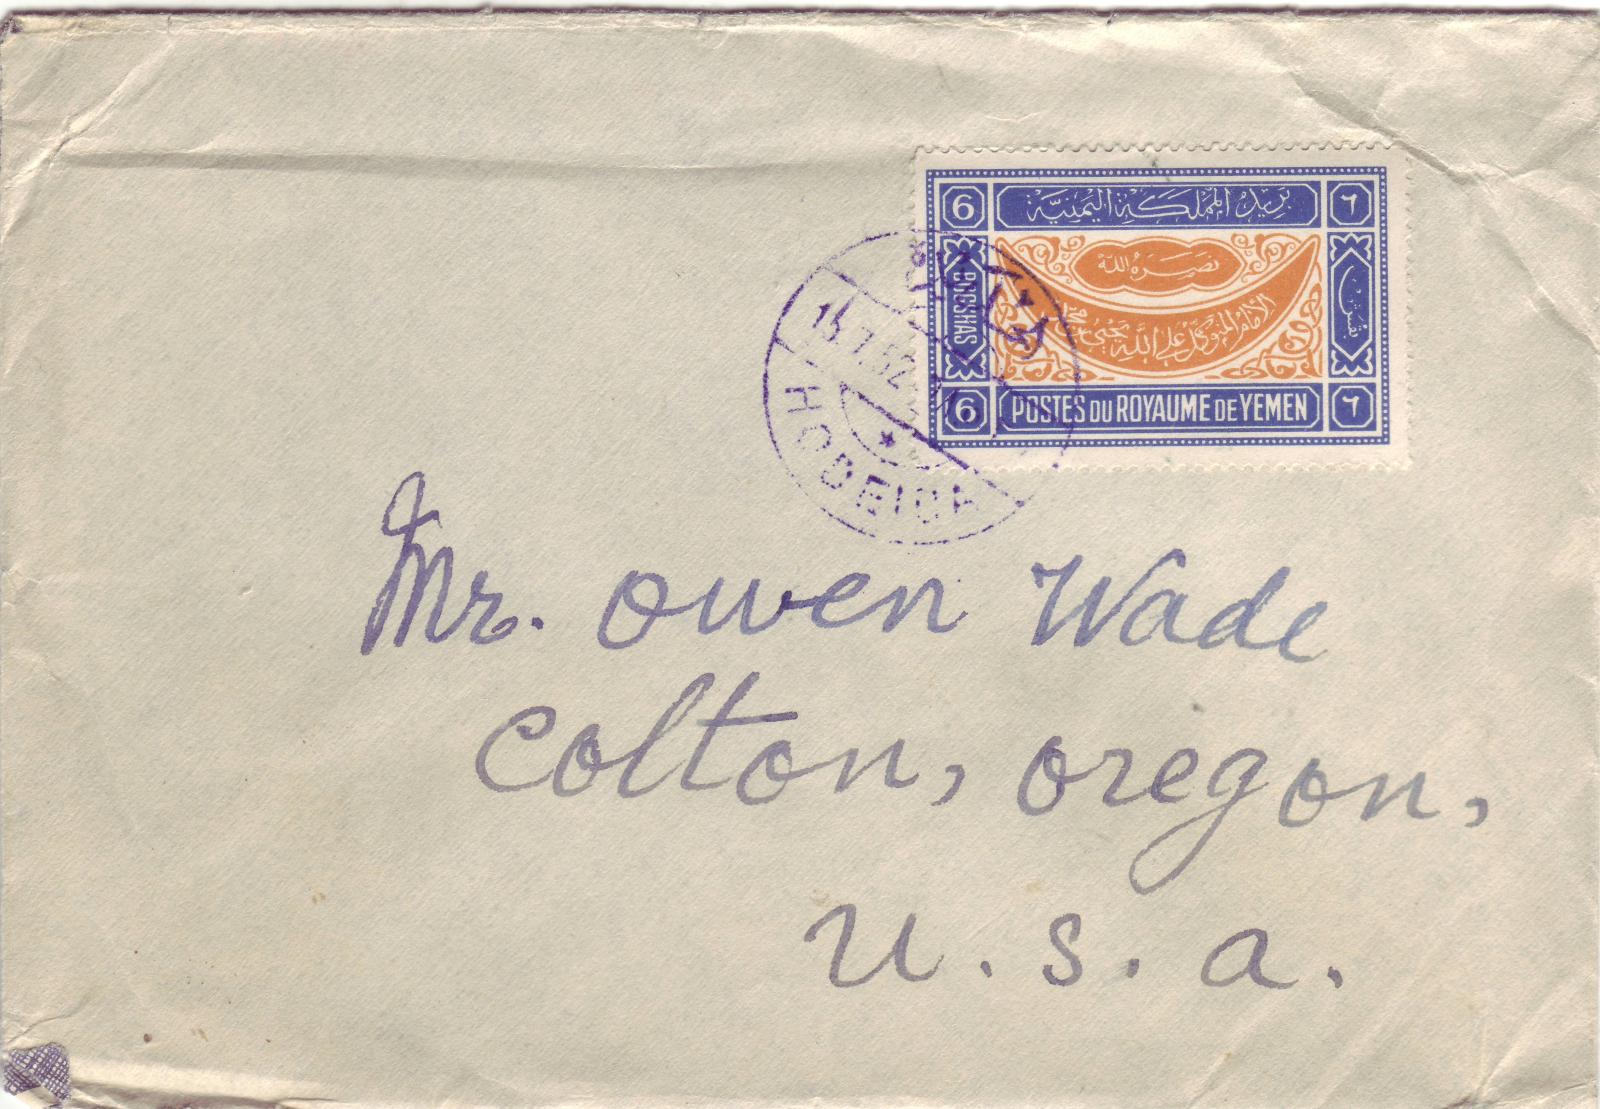 6 بريد المملكة اليمنية ٦
نصره الله
BOGSHAS
الإمام المتوكل على الله يحيى بن محمد
6 POSTES DU ROYAUME DE YEMEN ٦
7.52
HODEIDA
Mr. Owen Wade
Colton, Oregon,
U.S.A.